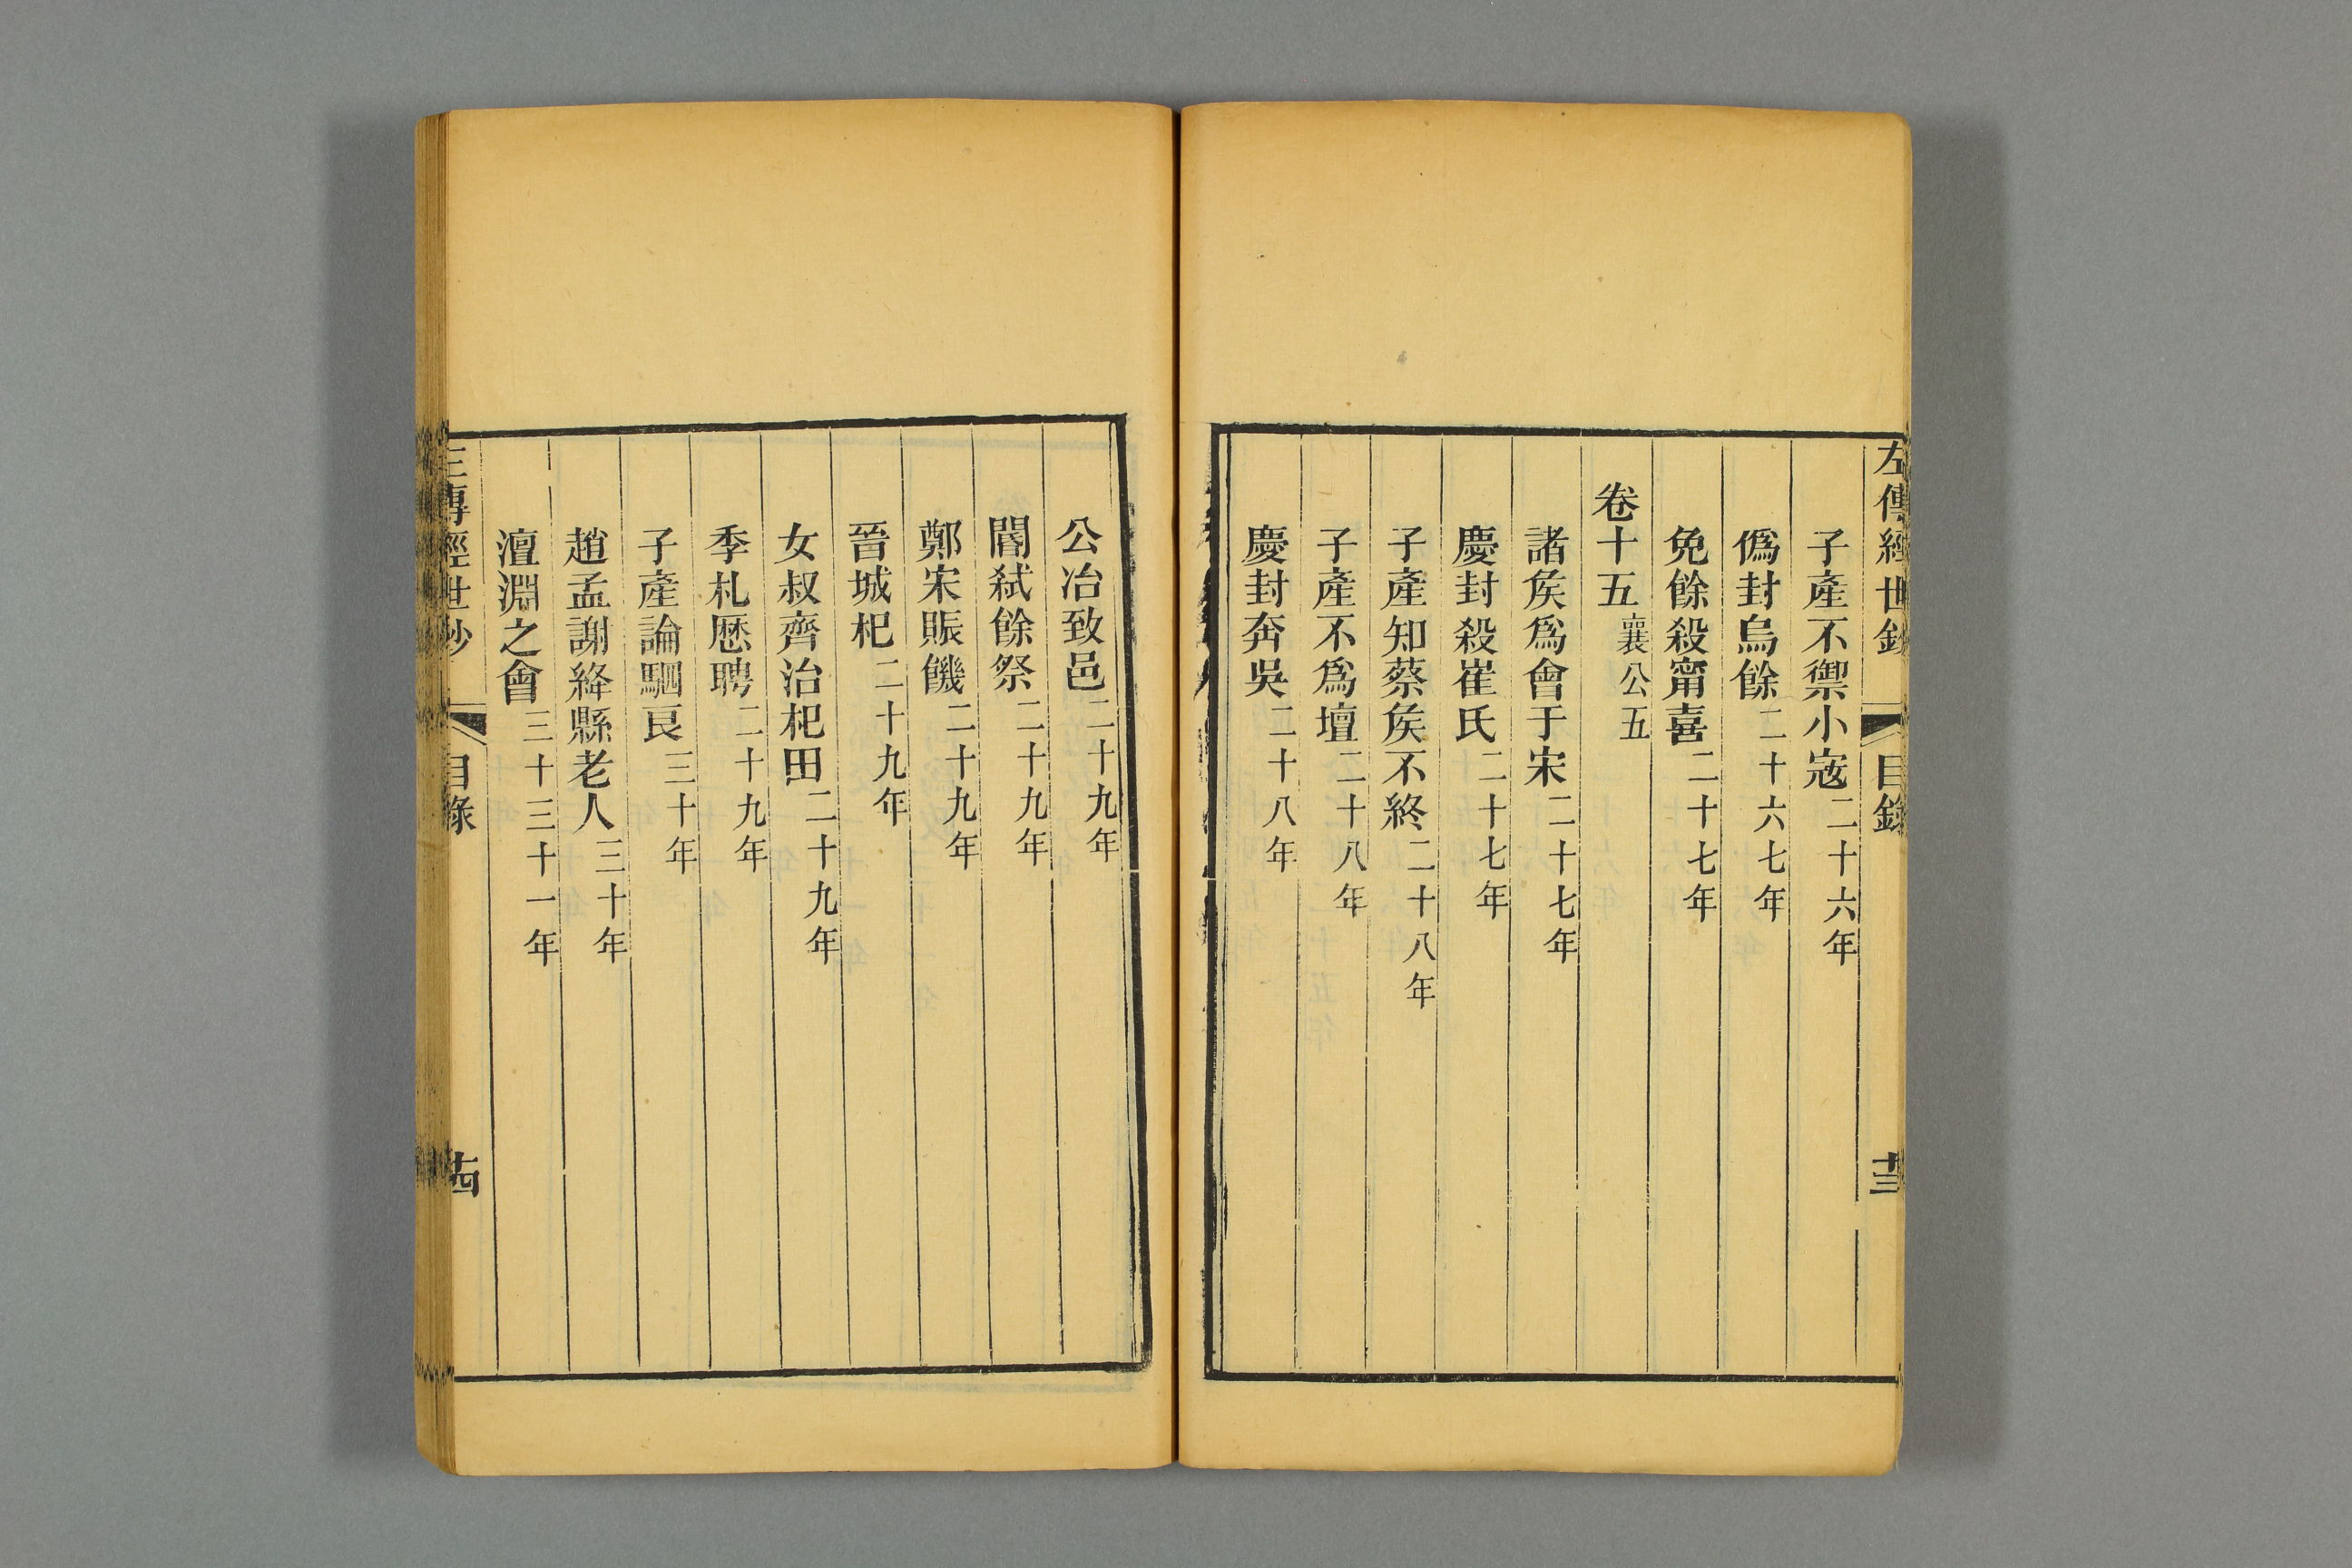 左傳經世鈔 目錄 十三
子產不禦小寇二十六年
僞封烏餘二十六七年
免餘殺甯喜二十七年
卷十五襄公五
諸矦爲會于宋二十七年
慶封殺崔氏二十七年
子產知蔡矦不終二十八年
子產不爲壇二十八年
慶封奔吳二十八年
公冶致邑二十九年
閽弑餘祭二十九年
鄭宋賑饑二十九年
晉城杞二十九年
女叔齊治杞田二十九年
季札歷聘二十九年
子產論駟良三十年
趙孟謝絳縣老人三十年
澶淵之會三十三十一年
左傳經世鈔 目錄 十四